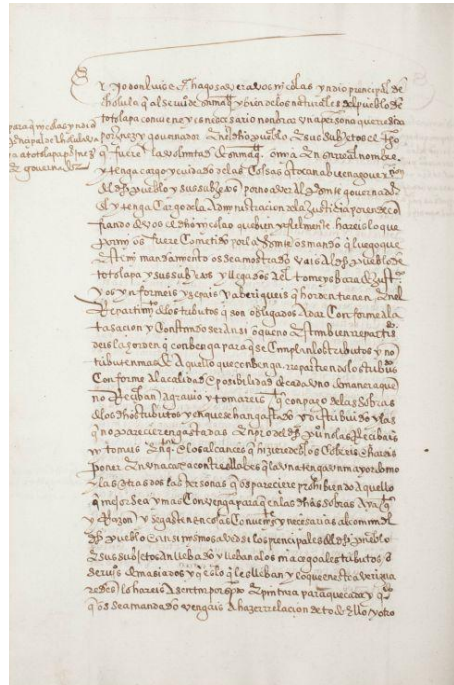 para q̃ nicolas yndio
prinçipal de cholula vaya
a totolapa por juez
de governador
Yo don luis & hago saver a vos nicolas yndio prinçipal de
cholula q̃ al servi° de su mag̃ y bien de los naturales del pueblo de
totolapa conviene y es neçesario nonbrar vna persona que resida
por juez y governador en el dho pueblo e sus subjetos el tpo
q̃ fuere la voluntad de su mag̃ o mia en su real nonbre
y tenga cargo y cuidado de las cosas q̃ tocan a buena governon
del dho pueblo y sus subjetos por no aver al presente governador
el y tenga cargo de la administraçion de la justiçia por ende co
fiando de vos el dho nicolas que bien y fielmente hareis lo que
por mi os fuere cometido por la presente os mando q̃ luego que
este mi mandamento os sea mostrado vais al dho pueblo de
totolapa y sus subjetos y llegado a el tomeys bara de justa
y os ynformeis y sepais y averigueis q̃ horden tienen en el
repartimto de los tributos q̃ son obligados a dar conforme a la
tasaçion y constando ser ansi o que no esta bien repartido
deis la horden q̃ conbenga para q̃ se cumplan los tributos y no
tributen mas de aquello que conbenga repartiendo los tributos
conforme a la calidad e posibilidad de cada vno de manera que
no reciban agravio y tomareis qta con pago de las sobras
de los dhos tributos y en que se han gastado y destribuido y las
q̃ no pareçieren gastadas en pro del dho puo no las reçibais
y tomeis en qta e los alcançes q̃ hizieredes los cobreis e hareis
poner en vna caxa con tres llabes q̃ la vna tenga vn mayordomo
y las otras dos las personas q̃ os pareçiere prohibiendo aquello
q̃ mejor sea y mas convenga para q̃ en las dhas sobras aya qta
y razon y se gasten en cosas convenientes y neçesarias al comun del
dho pueblo e ansi mismo averedes los prinçipales del dho pueblo
e sus subjetos an llebado y lleban a los maçeguales tributos o
serviçios demasiados y q̃ es lo q̃ les lleban y lo que en esto averigua
redes lo hareis asentar por escripto e pintura para que cada y qdo
q̃ os sea mandado vengais a hazer relaçion de todo ello y otro